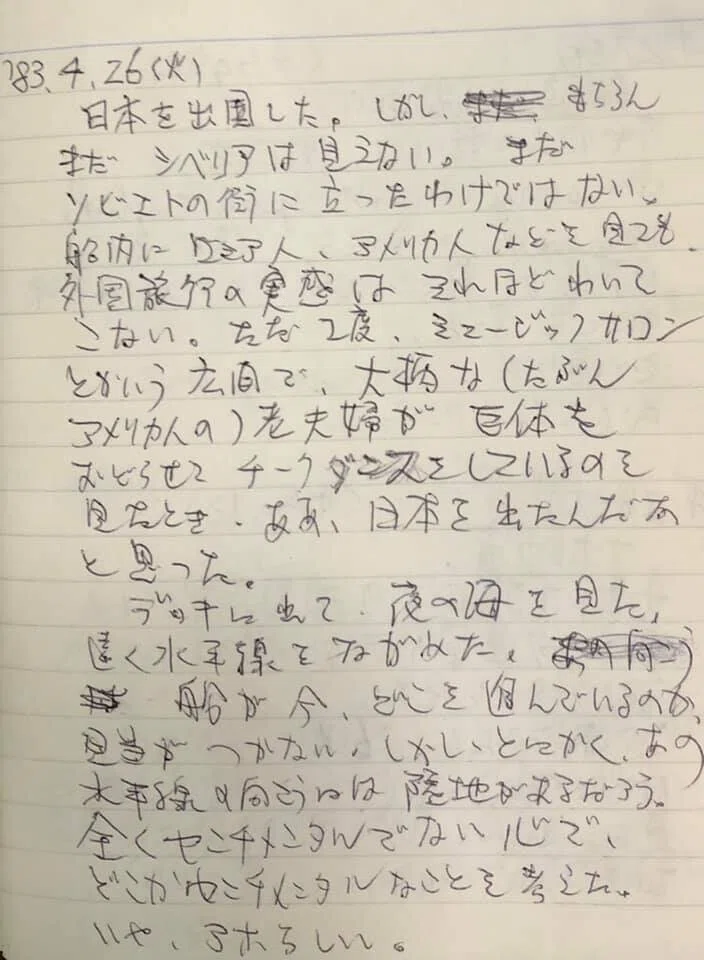 '83.4.26(火)
日本を出国した。しかし、もちろん
まだ シベリアは見えない。まだ
ソビエトの街に立ったわけではない。
船内にロシア人、アメリカ人などを見ても、
外国旅行の実感はそれほどわいて
こない。ただ1度、ミュージックサロン
とかいう広間で、大柄な(たぶん
アメリカ人の)老夫婦が巨体を
おどらせてチークダンスをしているのを
見たとき、ああ、日本を出たんだな
と思った。
デッキに出て、夜の海を見た。
遠く水平線をながめた。
船が今、どこを進んでいるのか、
見当がつかない。しかし、とにかく、あの
水平線の向こうには陸地があるだろう。
全くセンチメンタルでない心で、
どこかセンチメンタルなことを考えた。
いや、アホらしい。